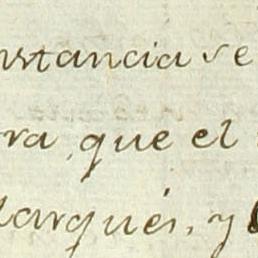 nstancia se
ra, que el
Marqués, y